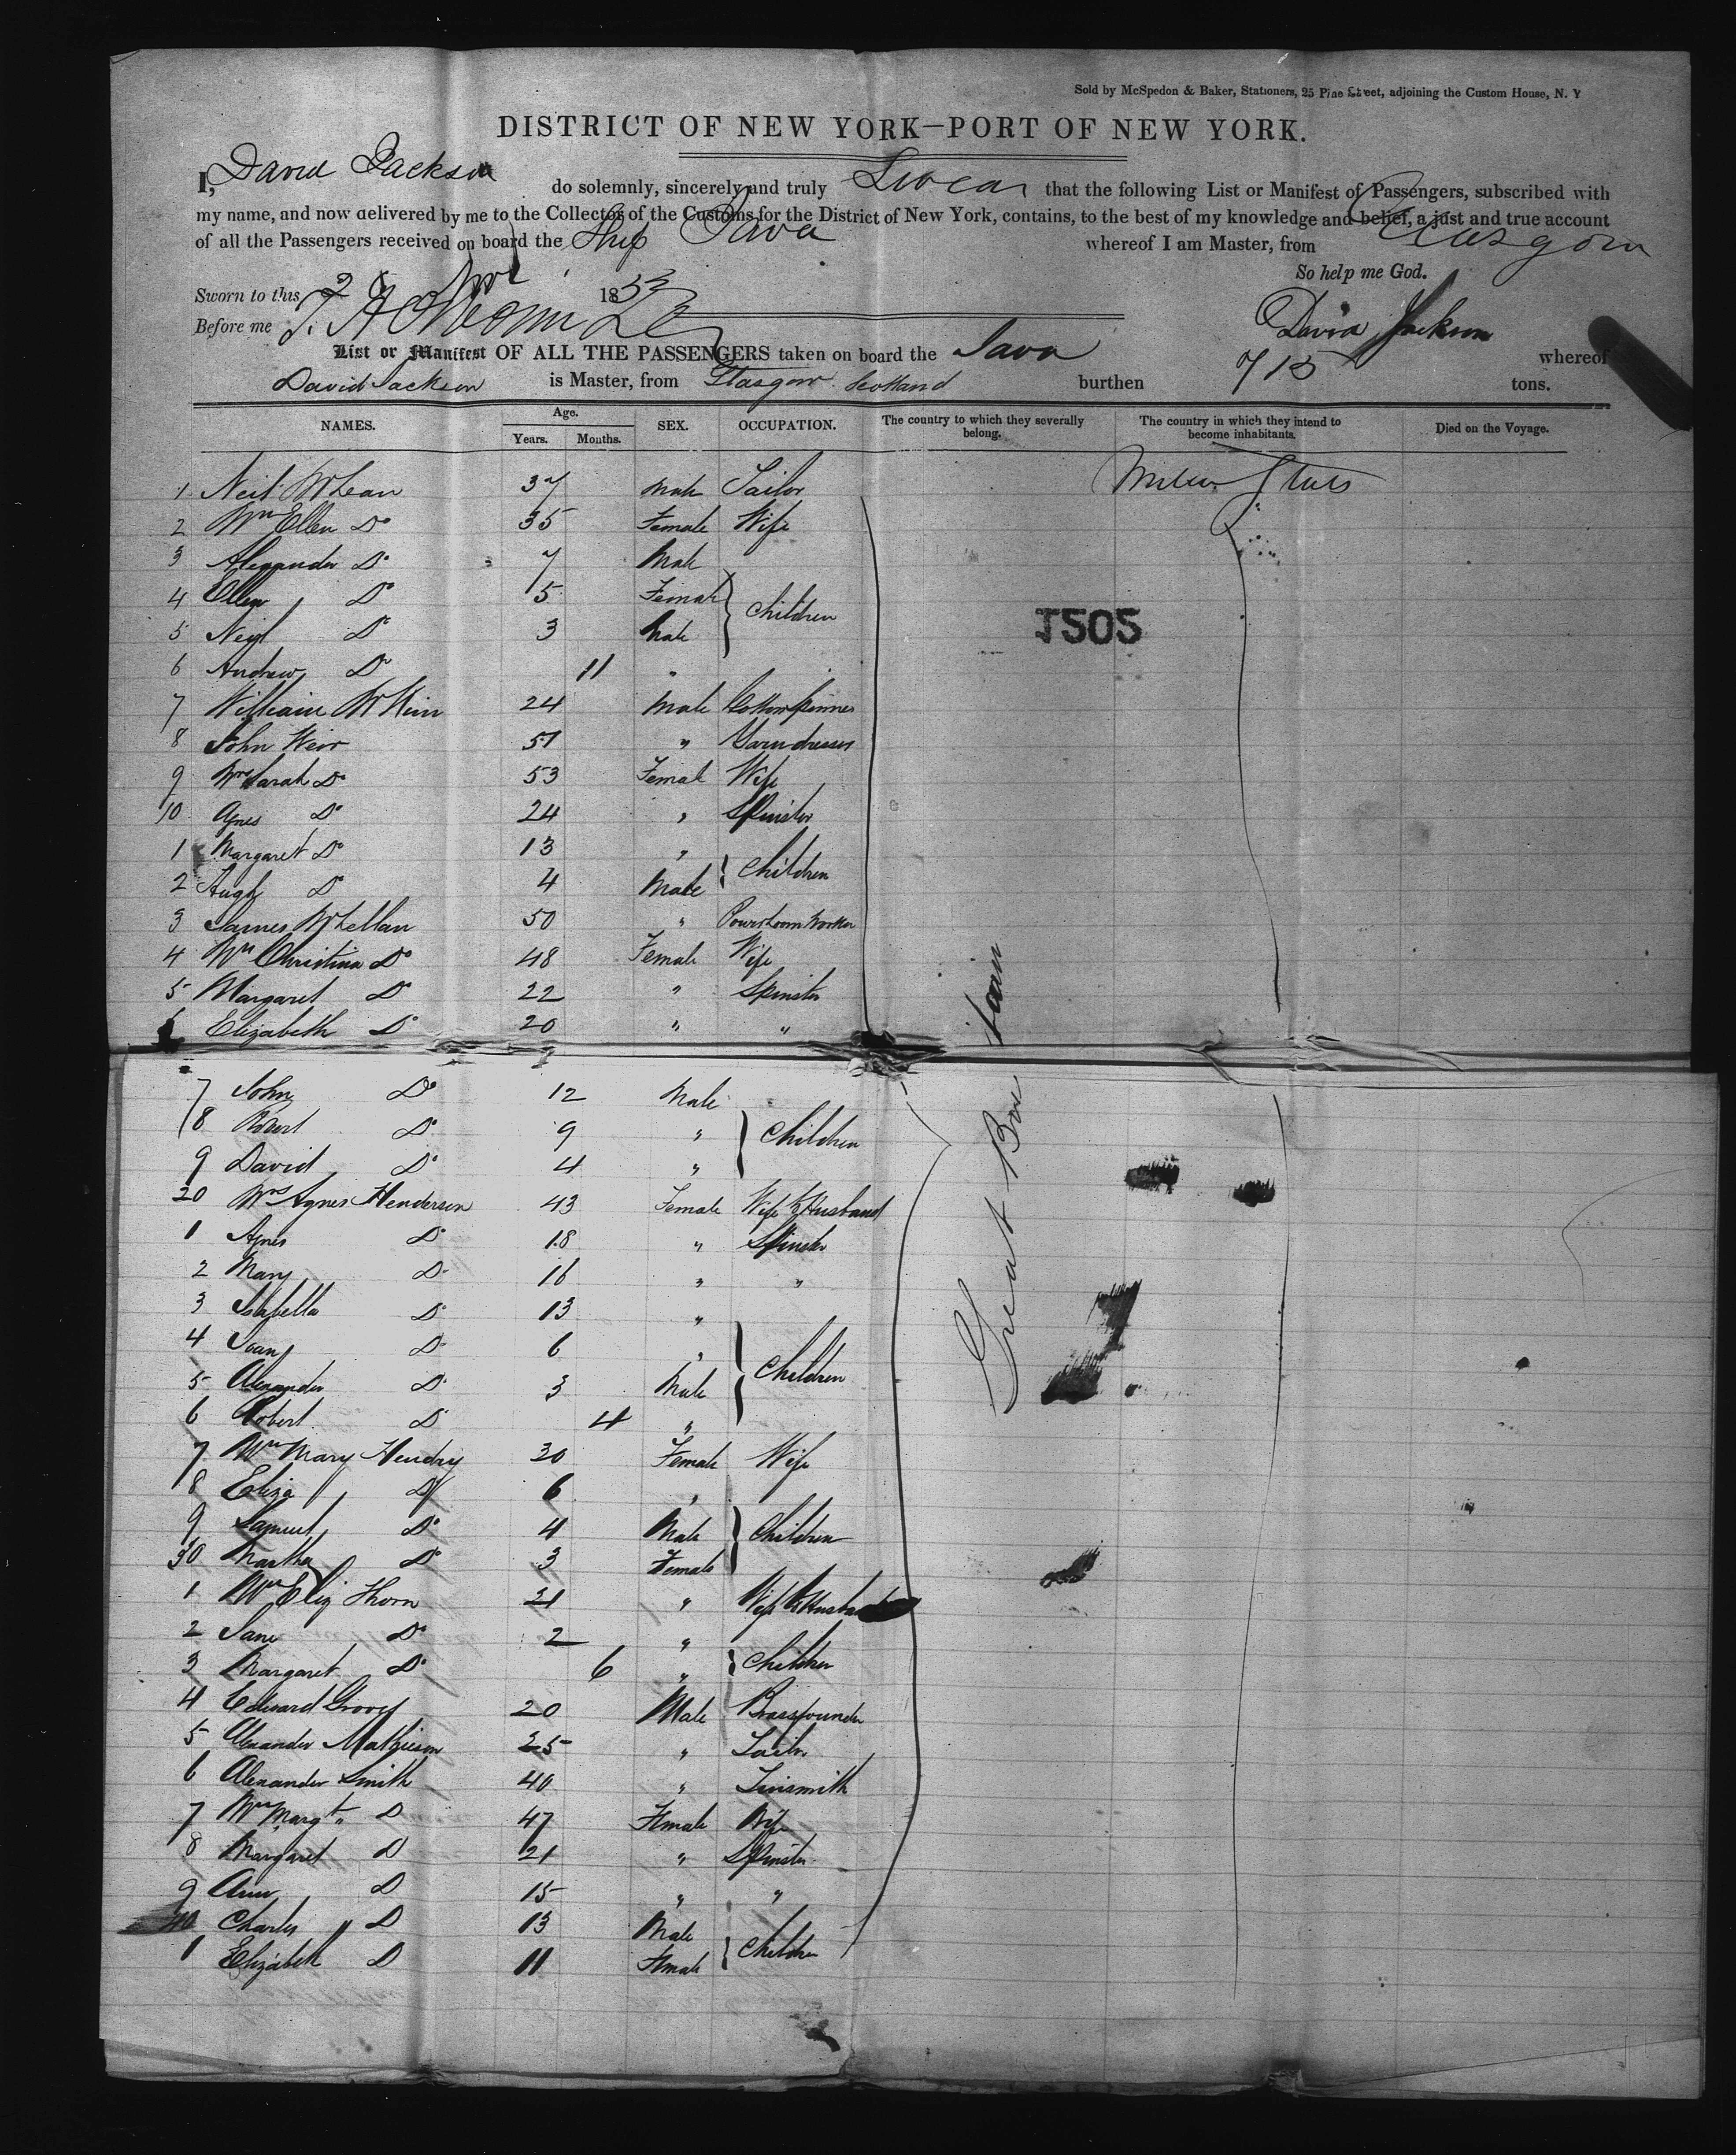 Sold by McSpedon & Baker, Stationers, 25 Pine Street, adjoining the Custom House, N. Y
DISTRICT OF NEW YORK—PORT OF NEW YORK.
I, David Jackson do solemnly, sincerely and truly Swear that the following List or Manifest of Passengers, subscribed with
my name, and now delivered by me to the Collector of the Customs for the District of New York, contains, to the best of my knowledge and belief, a just and true account
of all the Passengers received on board the Ship Java whereof I am Master, from Glasgow
So help me God.
Sworn to this 28 Apl 1853
Before me David Jackson
List or Manifest OF ALL THE PASSENGERS taken on board the Java whereof
David Jackson is Master, from Glasgow Scotland burthen 715 tons.
NAMES. Age. Years. Months. SEX. OCCUPATION. The country to which they severally belong. The country in which they intend to become inhabitants. Died on the Voyage.
1 Neil McLean 37 Male Tailor United States
2 Mrs Ellen Do 35 Female Wife
3 Alexander Do 7 Male
4 Ellen Do 5 Female Children
5 Neil Do 3 Male
6 Andrew Do 11 "
7 William 24 Male Cotton Spinner
8 John Weir 51 " Yarn dresser
9 Mrs Sarah Do 53 Female Wife
10 Agnes Do 24 " Spinster
1 Margaret Do 13 "
2 Hugh Do 4 Male Children
3 James McLellan 50 " Powerloom Worker
4 Mrs Christina Do 48 Female Wife
5 Margaret Do 22 " Spinster
6 Elizabeth Do 20 " "
7 John Do 12 Male
8 Robert Do 9 " Children
9 David Do 4 "
20 Mrs Agnes Henderson 43 Female Wife to Husband
1 Agnes Do 18 " Spinster
2 Mary Do 16 " "
3 Isabella Do 13 "
4 Jean Do 6 "
5 Alexander Do 3 Male Children
6 Robert Do 4 "
7 Mrs Mary Hendry 30 Female Wife
8 Eliza Do 6 "
9 Samuel Do 4 Male Children
30 Martha Do 3 Female
1 Mrs Eliz Thorn 21 " Wife to Husband
2 Jane Do 2 "
3 Margaret Do 6 " Children
4 Edward 20 Male Brassfounder
5 Alexander Mathieson 25 " Tailor
6 Alexander Smith 40 " Tinsmith
7 Mrs Margt D 47 Female Wife
8 Margaret D 21 " Spinster
9 Ann D 15 " "
40 Charles D 13 Male
1 Elizabeth D 11 Female Children
Great Britain
T505